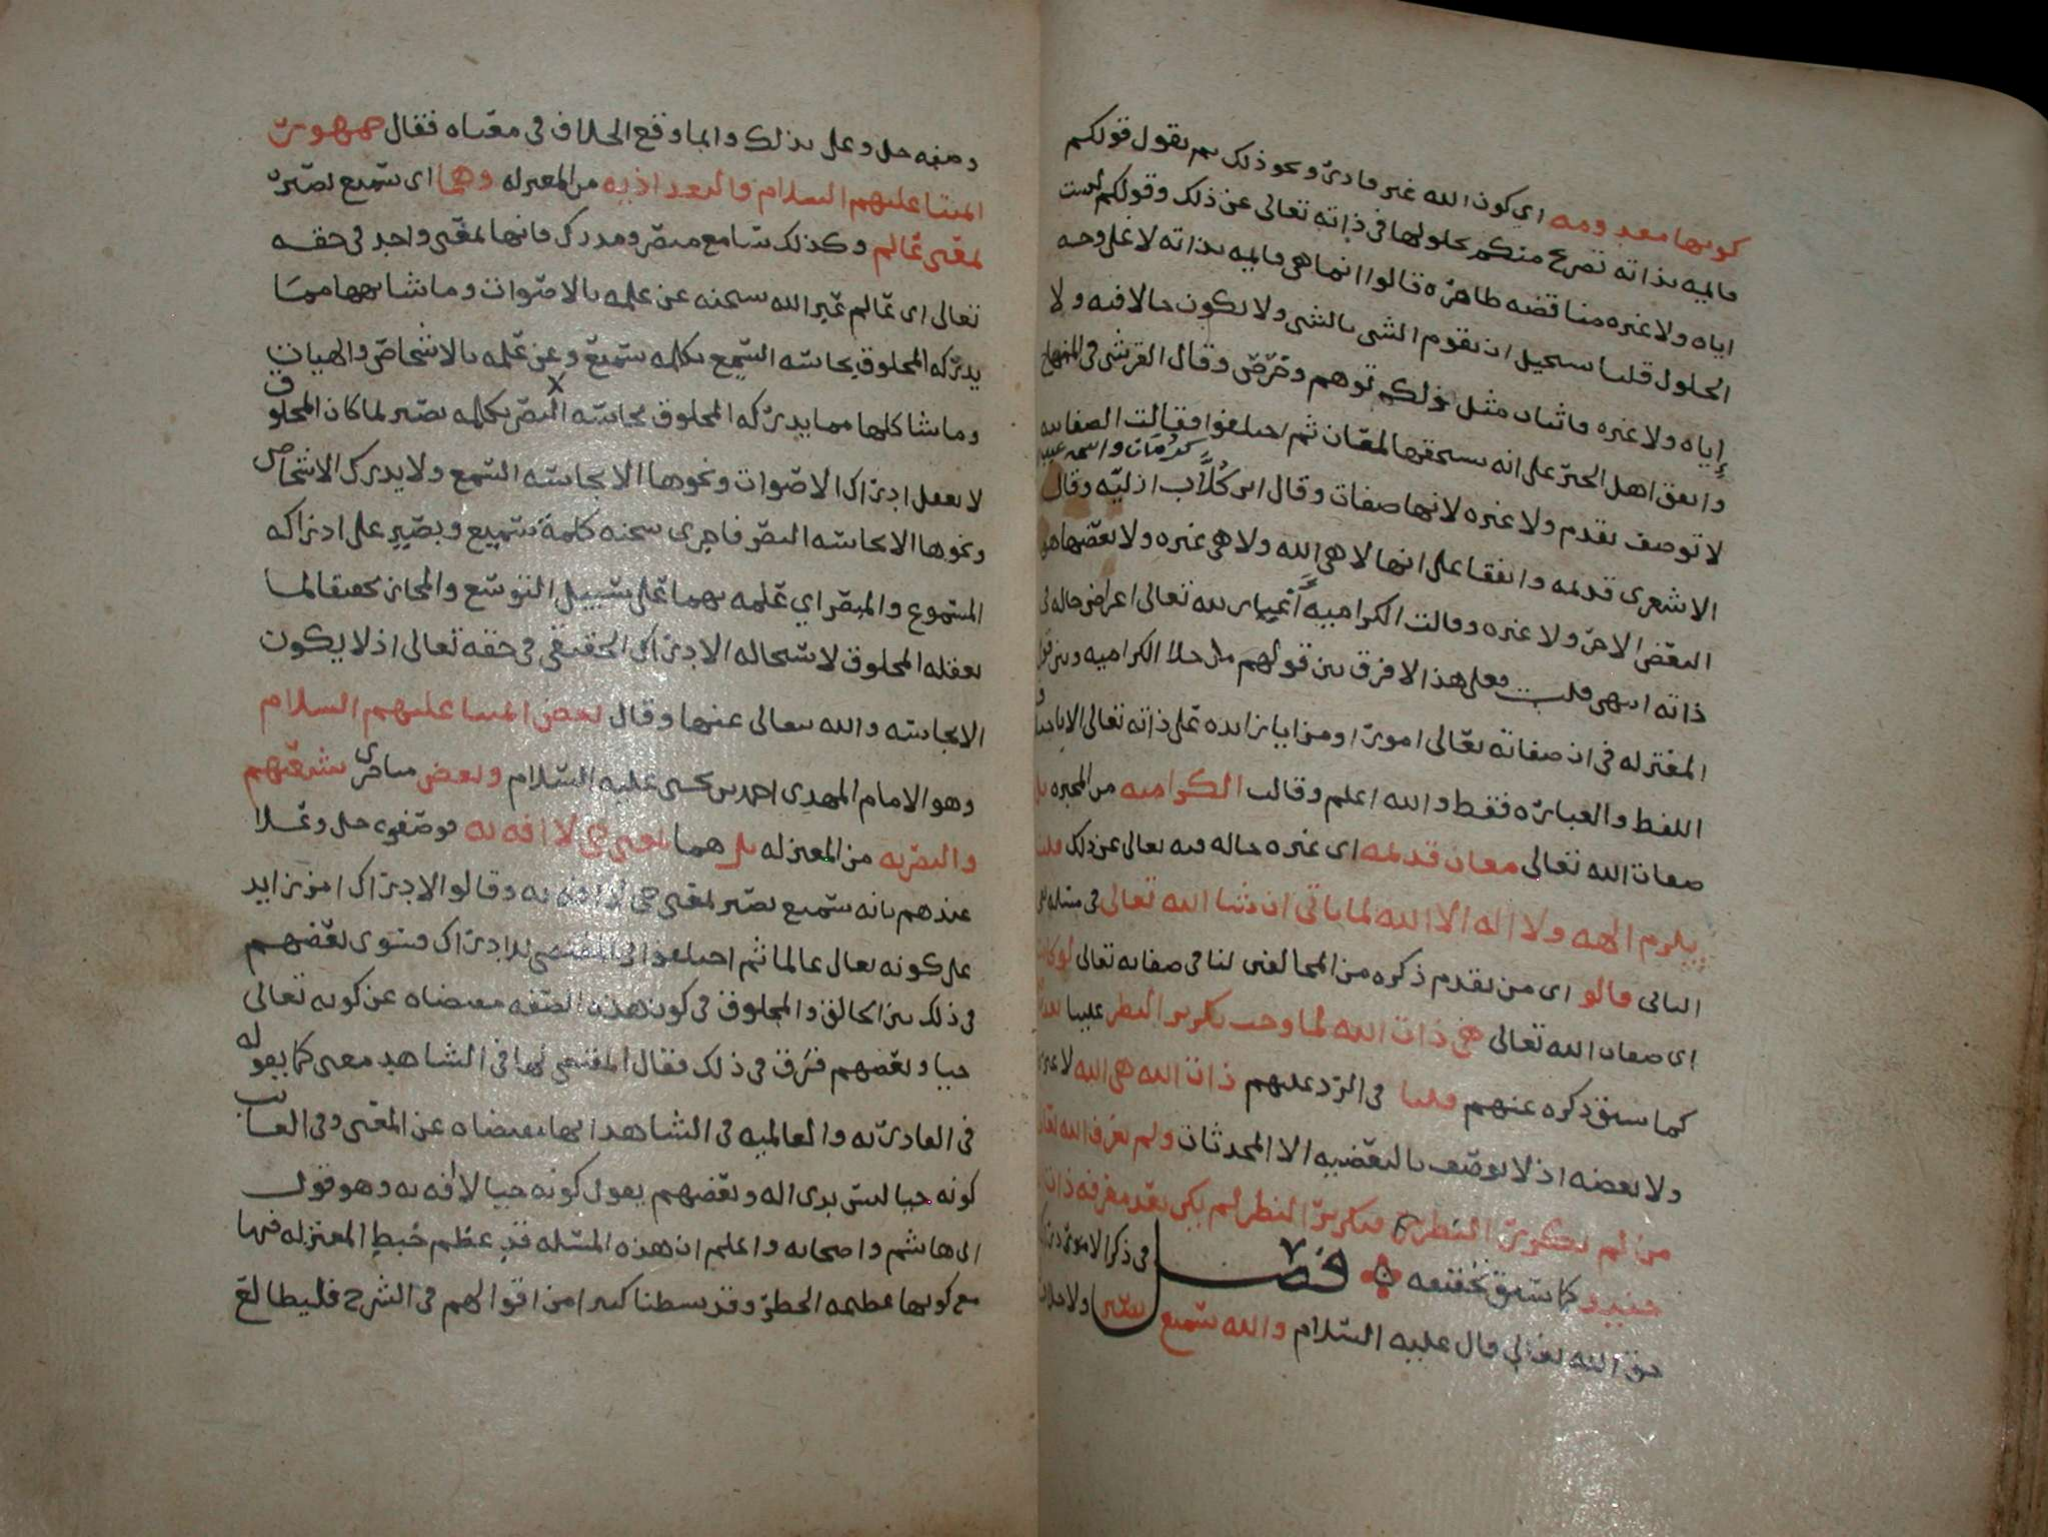 كونها معدومه اي كون الله غير قادر ونحو ذلك ثم نقول قولكم
قالميه بذاته تصريح منكم بحلولها في ذاته تعالى عن ذلك وقولكم ليست
اياه ولا غيره مناقضه ظاهره قالوا انما هي قالميه بذاته لا على وجه
الحلول قلنا يستحيل ان يقوم الشي بالشي ولا يكون حالا فيه ولا
إياه ولا غيره فاثبات مثل ذلكم توهم وقال القرشي في المنهاج
واتفق اهل الجبر على انه يستحقها لمعان ثم اختلفوا فقالت الصفاتيه
كرُمّان واسمه عبد
لا توصف بقدم ولا غيره لانها صفات وقال ابن كُلَّاب ازليّه وقال
الاشعري قديمه واتفقا على انها لا هي الله ولا هي غيره ولا بعضها هو
البعض الاخر ولا غيره وقالت الكراميه أغيار لله تعالى اعراض حاله في
ذاته انتهى قلت فعلى هذا لا فرق بين قولهم ما خلا الكراميه وبين قول
المعتزله في ان صفاته تعالى امورا ومزايا زايده على ذاته تعالى الا
اللفظ والعباره فقط والله اعلم وقالت الكراميه من المجبره بل
صفات الله تعالى معان قديمه اي غيره حاله فيه تعالى عن ذلك قلنا
يلزم الهه ولا اله الا الله لما ياتي ان شا الله تعالى في مسئله نفي
الثاني قالو اي من تقدم ذكره من المخالفين لنا في صفاته تعالى لو كانت
اي صفات الله تعالى هي ذات الله لما وجب تكرير النظر علينا بعد
كما سبق ذكره عنهم قلنا في الرد عليهم ذات الله هي الله لا غيره
ولا بعضه اذ لا يوصف بالبعضيه الا المحدثات ولم يعرف الله تعالى
من لم يتكرر النظر فتكرير النظر لم يكن بعد معرفه ذات
كما سبق تحقيقه فصل في ذكر الا
حق الله تعالى قال عليه السلام والله سميع بصير ولا خلاف
وصفه جل وعلى بذلك وانما وقع الخلاف في معناه فقال جمهور
ائمتنا عليهم السلام والبغداذيه من المعتزله وهما اي سميع بصير
بمعنى عالم وكذلك سامع مبصر ومدرك فانها بمعنى واحد في حقه
تعالى اي عالم عبر الله سبحنه عن علمه بالاصوات وما شابهها مما
يدركه المخلوق بحاسه السمع بكلمه سميع وعن علمه بالاشخاص والهيات
وما شاكلها مما يدركه المخلوق بحاسه البصر بكلمه بصير لما كان المخلوق
لا يعقل ادراك الاصوات ونحوها الا بحاسه السمع ولا يدرك الاشخاص
ونحوها الا بحاسه البصر فاجرى سبحنه كلمة سميع وبصير على ادراكه
المسموع والمبصر اي علمه بهما على سبيل التوسع والمجاز تحقيقا لما
يعقله المخلوق لاستحاله الادراك الحقيقي في حقه تعالى اذ لا يكون
الا بحاسه والله تعالى عنها وقال بعض ائمتنا عليهم السلام
وهو الامام المهدي احمد بن يحيى عليه السلام وبعض متاخري شيعتهم
والبصريه من المعتزله بل هما بمعنى حي لا افه به فوصفوه جل وعلا
عندهم بانه سميع بصير بمعنى حي لا افه به وقالو الادراك امر زايد
على كونه تعالى عالما ثم اختلفوا في المقتضي للادراك فسوى بعضهم
في ذلك بين الخالق والمخلوق في كون هذه الصفه مقتضاه عن كونه تعالى
حيا وبعضهم فرق في ذلك فقال المقتضي لها في الشاهد معنى كما يقوله
في القادريه والعالميه في الشاهد انها مقتضاه عن المعنى وفي الغائب
كونه حيا ليس بذي اله وبعضهم يقول كونه حيا لا افه به وهو قول
ابي هاشم واصحابه واعلم ان هذه المسئله قد عظم خبط المعتزله فيها
مع كونها عظيمه الخطر وقد بسطنا كثيرا من اقوالهم في الشرح فليطالع